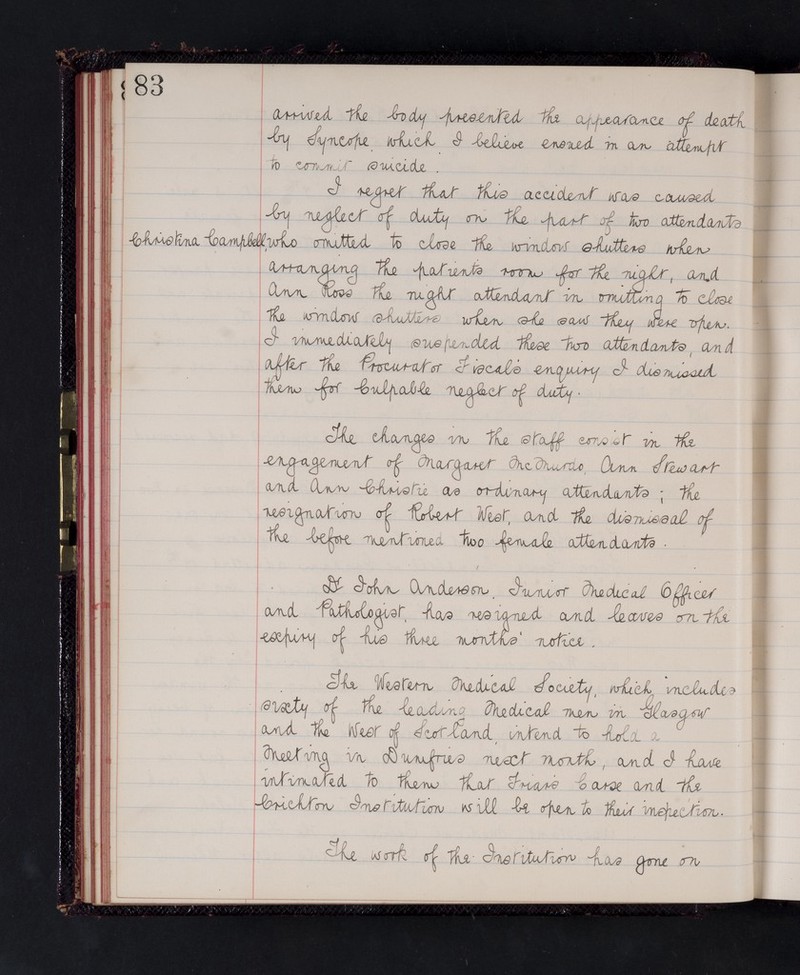 83
arrived the body presented the appearance of death
by Syncope which I believe ensued in an attempt
to commit suicide.
I regret that this accident was caused
by neglect of duty on the part of two attendants
Christina Campbell, who omitted to close the window shutters when
arranging the patients room for the night, and
Ann Ross the night attendant in omitting to close
the window shutters when she saw they were open.
I immediately suspended these two attendants, and
after the Procurator Fiscals enquiry I dismissed
them for Culpable neglect of duty.
The changes in the staff consist in the
engagement of Margaret McMurdo, Ann Stewart
and Ann Christie as ordinary attendants; the
resignation of Robert West, and the dismissal of
the before mentioned two female attendants.
Dr John Anderson, Junior Medical Officer
and Pathologist, has resigned and leaves on the
expiry of his three months' notice.
The Western Medical Society, which includes
sixty of the leading Medical men in Glasgow
and the West of Scotland, intend to hold a
Meeting in Dumfries next month, and I have
intimated to them that Friars Carse and the
Crichton Institution will be open to their inspection.
The work of the Institution has gone on